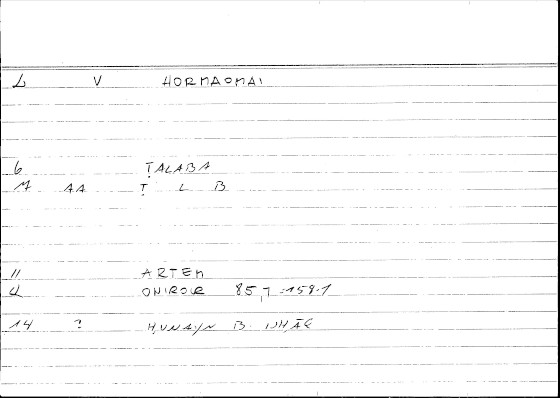 L V HORMAOMAI
6 ṬALABA
M AA Ṭ L B
11 ARTEM
ONIROCR 85,7 = 159.1
14 ? HUNAYN B. ISHĀQ